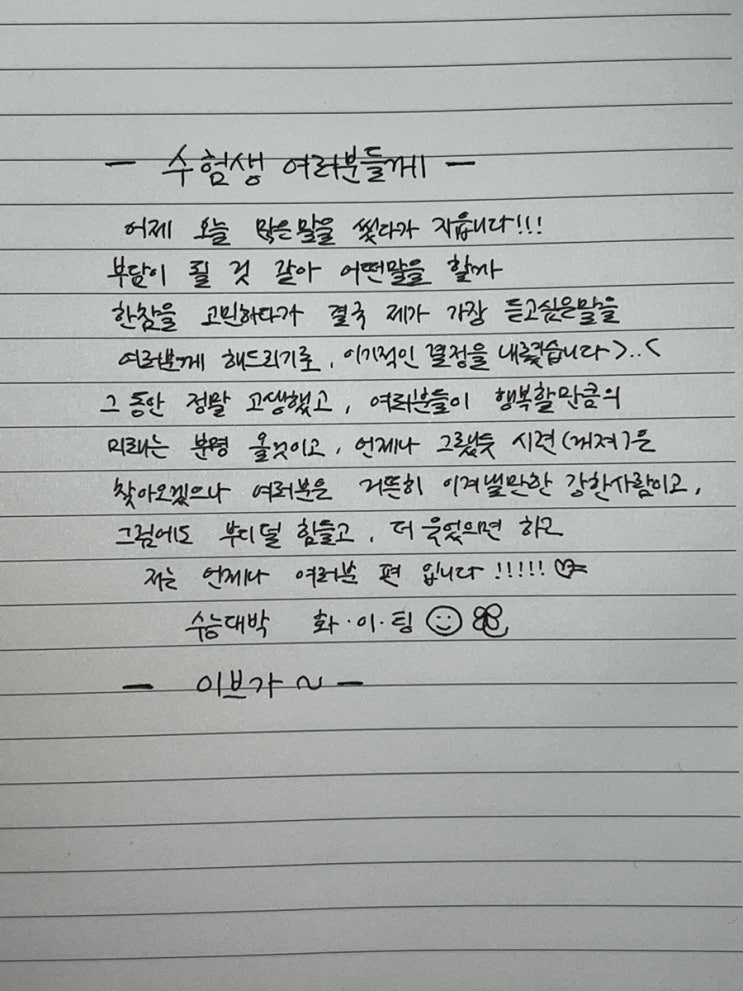 — 수험생 여러분들께 —
어제 오늘 많은말을 썼다가 지웁니다!!!
부담이 될 것 같아 어떤말을 할까
한참을 고민하다가 결국 제가 가장 듣고싶은말을
여러분께 해드리기로, 이기적인 결정을 내렸습니다>..<
그 동안 정말 고생했고, 여러분들이 행복할만큼의
미래는 분명 올것이고, 언제나 그랬듯 시련(꺼져)은
찾아오겠으나 여러분은 거뜬히 이겨낼만한 강한사람이고,
그럼에도 부디 덜 힘들고, 더 웃었으면 하고
저는 언제나 여러분 편 입니다!!!!!
수능대박 화·이·팅
— 이브가 ~ —